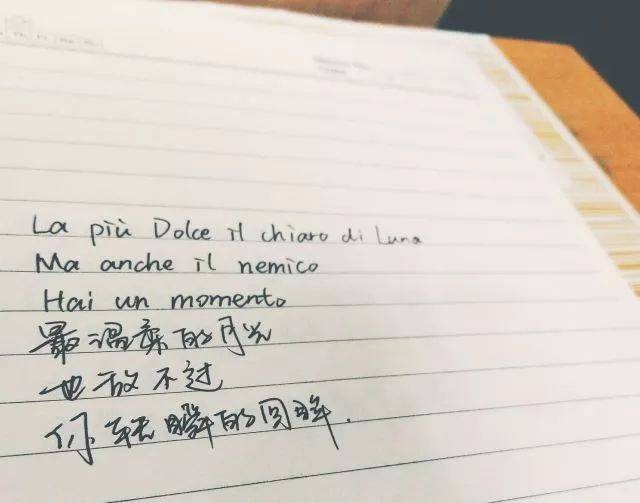 La più Dolce il chiaro di Luna
Ma anche il nemico
Hai un momento
最温柔的月光
也敌不过
你转瞬的回眸.